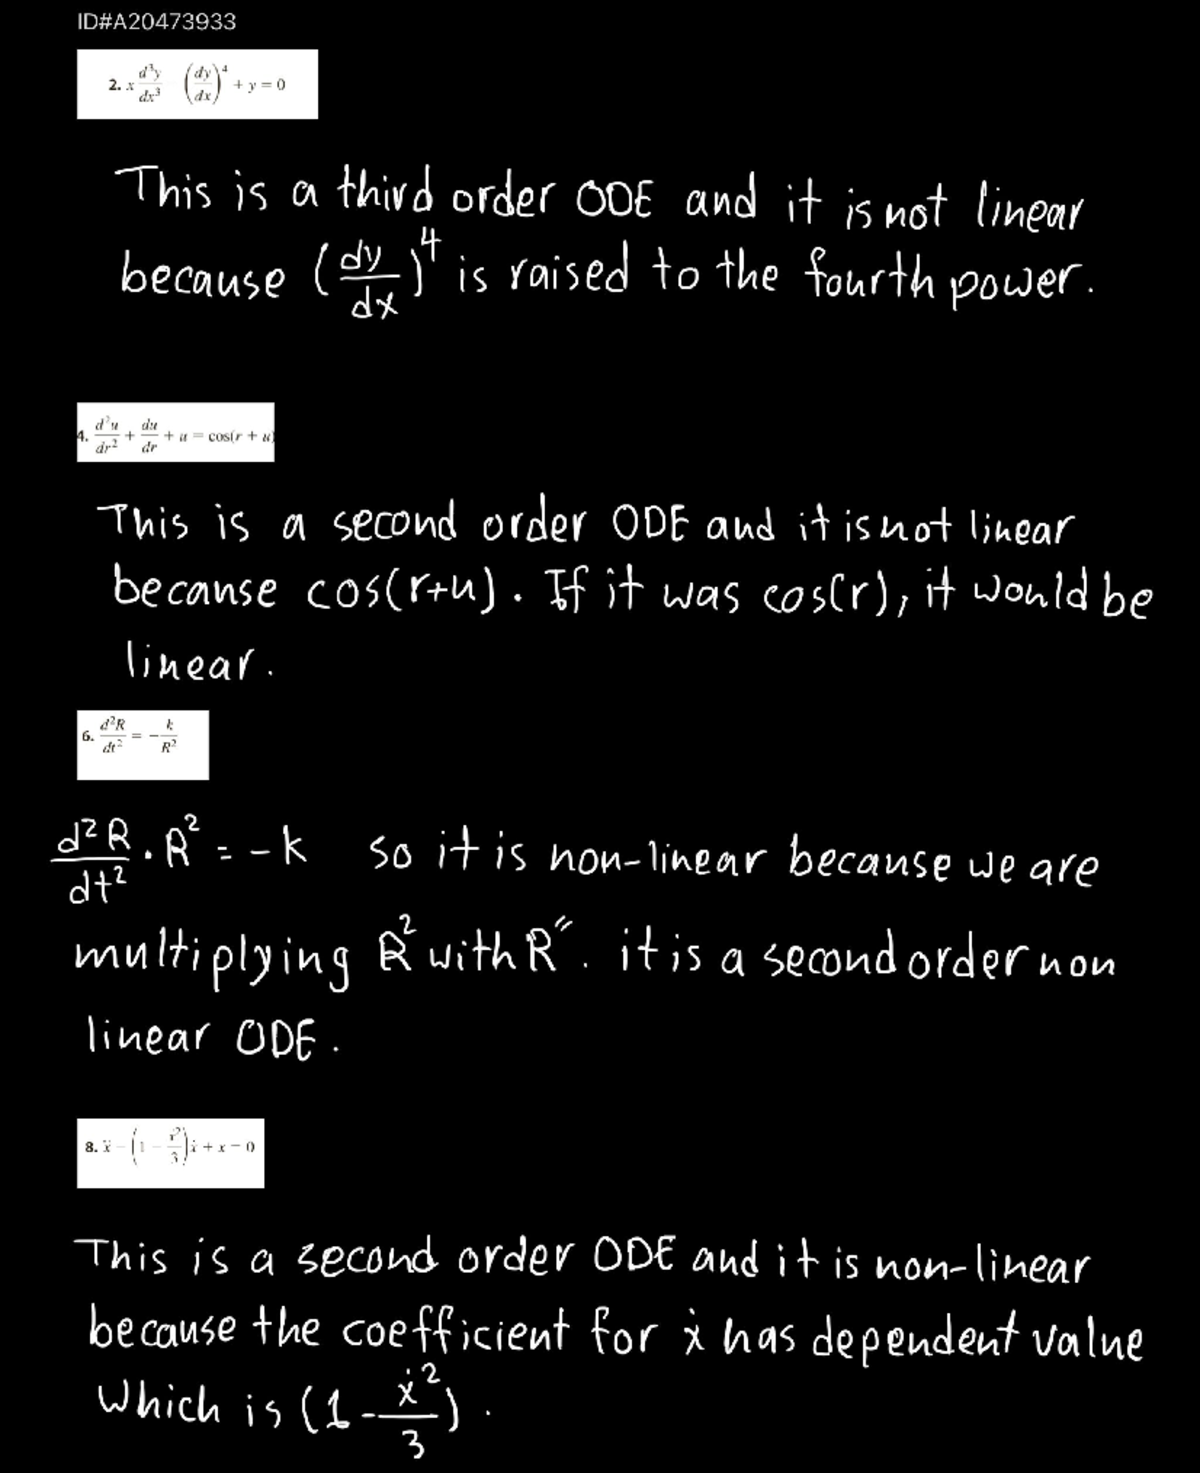 ID#A20473933
2. x d³y/dx³ (dy/dx)⁴ + y = 0
This is a third order ODE and it is not linear
because (dy/dx)⁴ is raised to the fourth power.
4. d²u/dr² + du/dr + u = cos(r + u)
This is a second order ODE and it is not linear
because cos(r+u). If it was cos(r), it would be
linear.
6. d²R/dt² = -k/R²
d²R/dt² · R² = -k so it is non-linear because we are
multiplying R² with R″. it is a second order non
linear ODE.
8. ẍ - (1 - ẋ²/3)ẋ + x = 0
This is a second order ODE and it is non-linear
because the coefficient for ẋ has dependent value
Which is (1 - ẋ²/3).